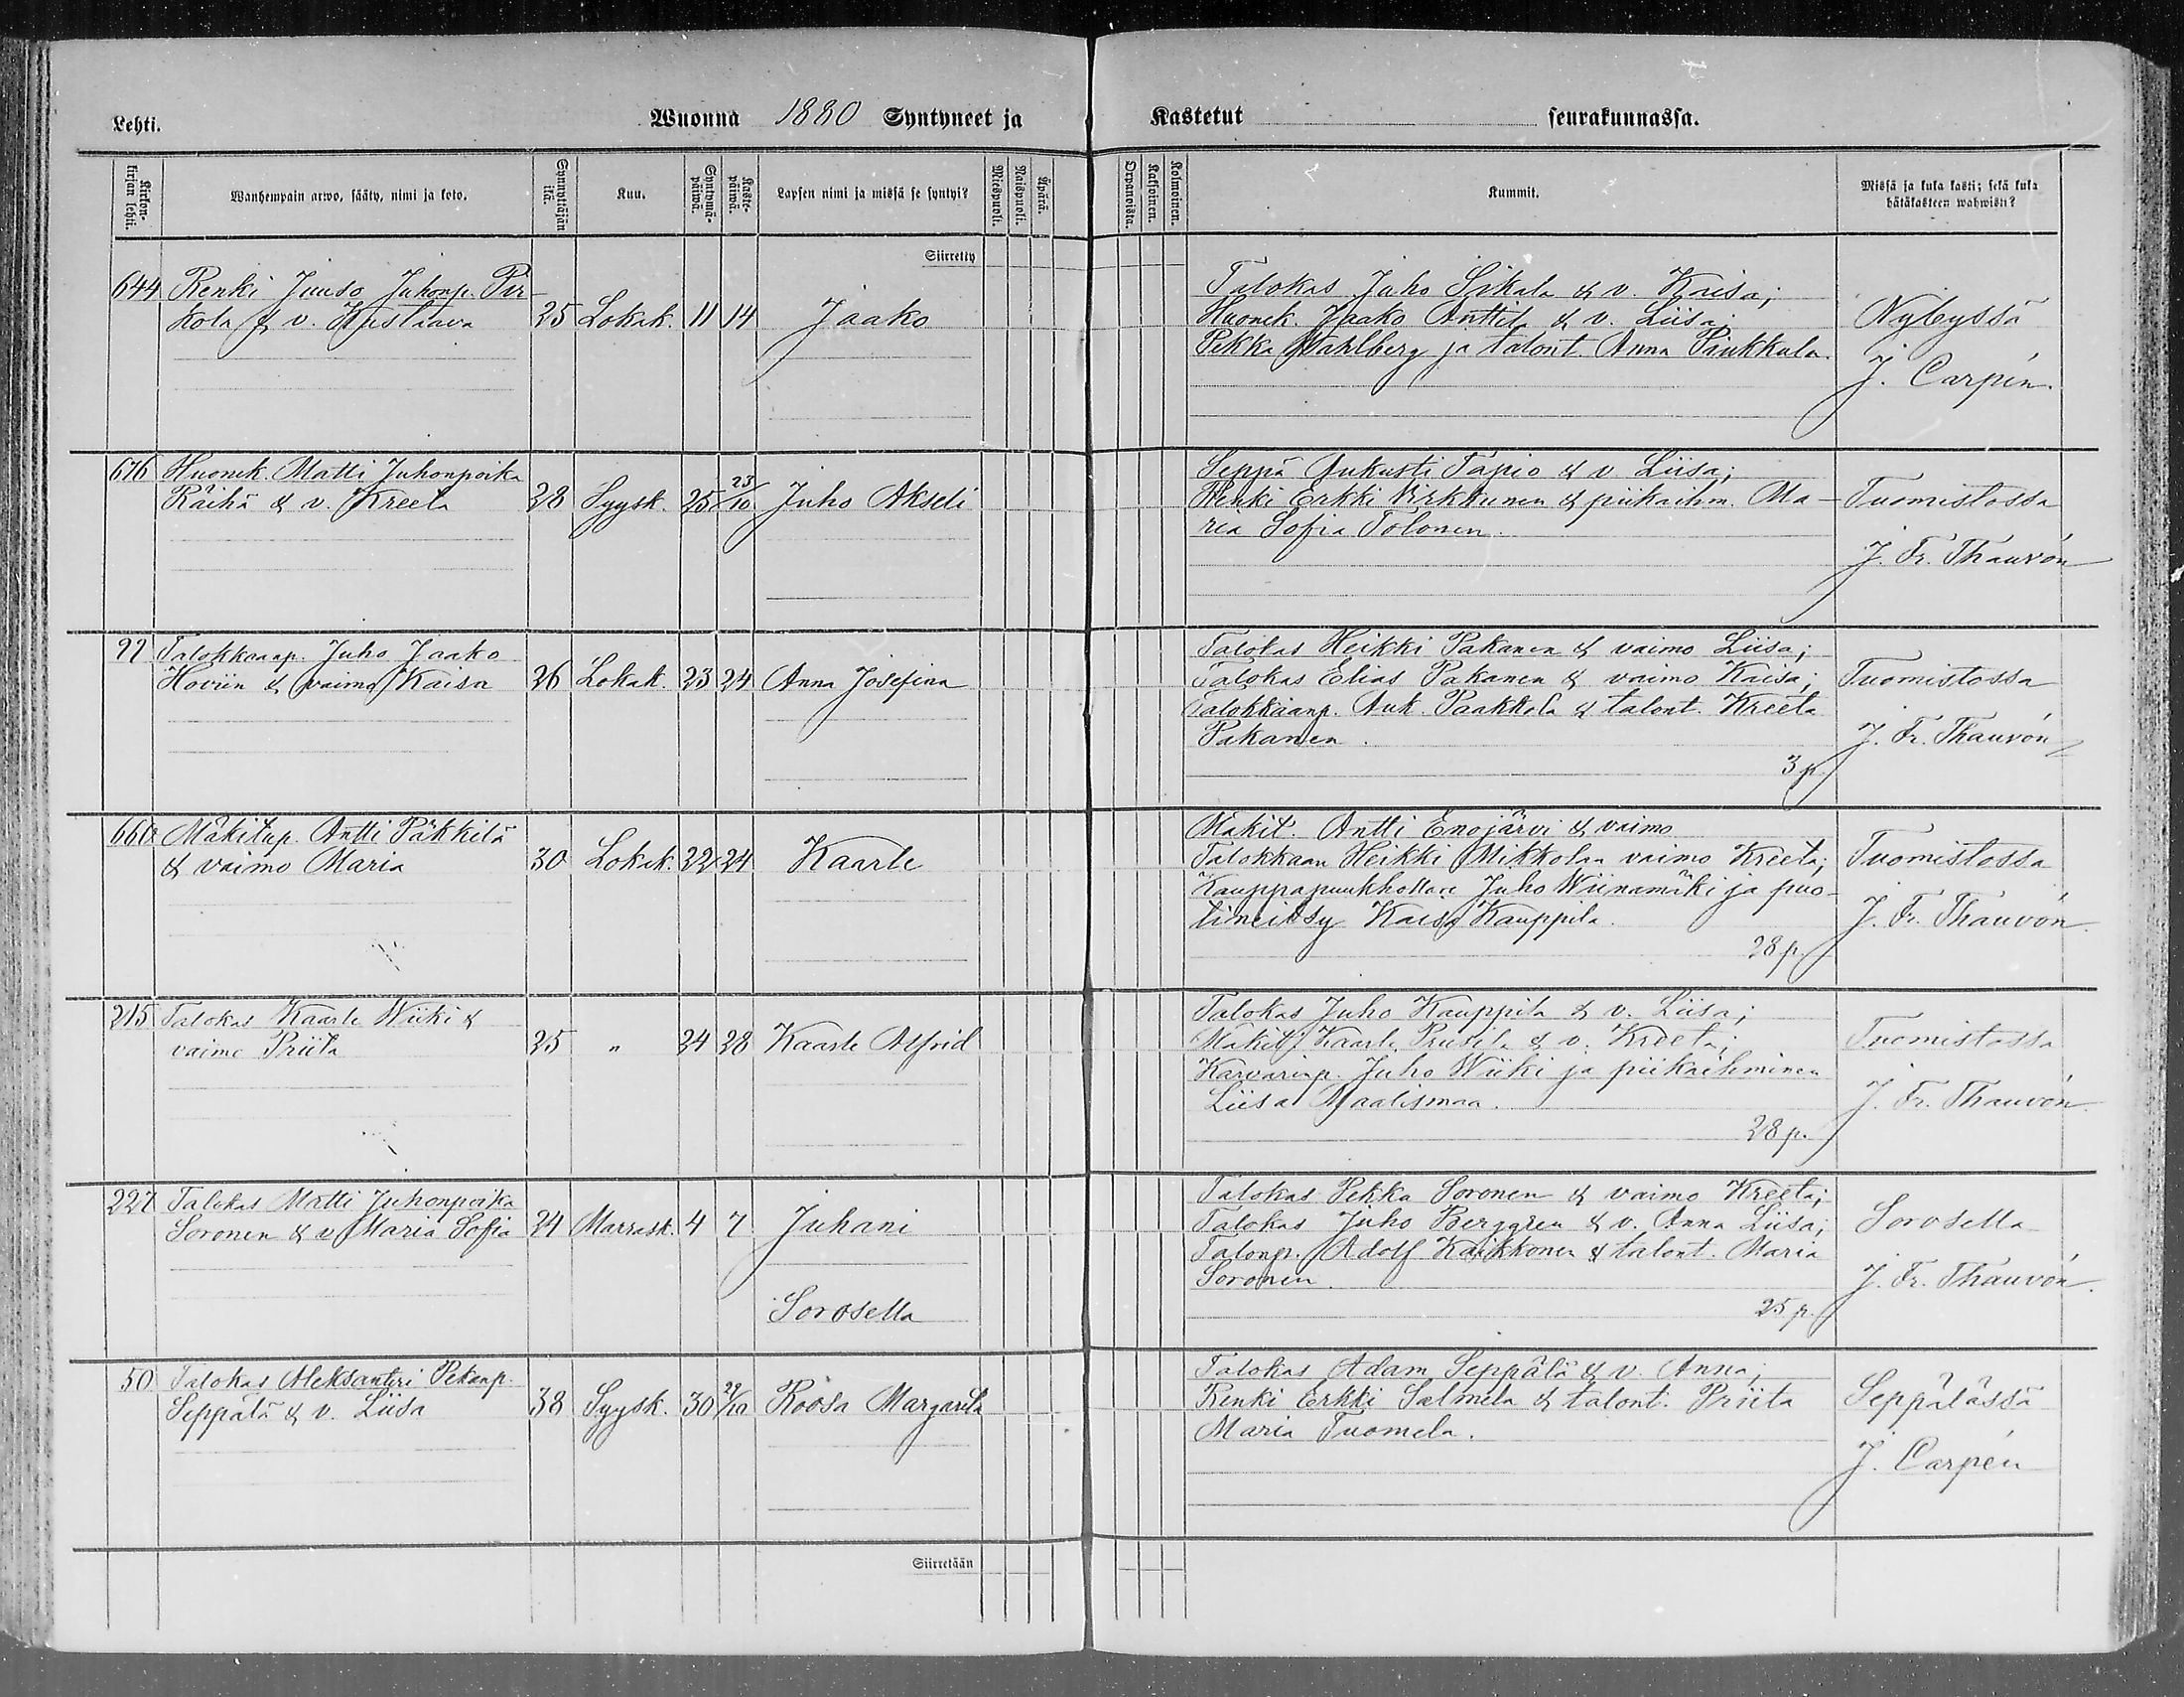 Lehti.
Wuonna 1880 Syntyneet ja
Kastetut seurakunnassa.
Kirkon-kirjan lehti.
Wanhempain arwo, sääty, nimi ja koto.
Synnyttäjän ikä.
Kuu.
Syntymä-päiwä.
Kaste-päiwä.
Lapsen nimi ja missä se syntyi?
Miespuoli.
Naispuoli.
Äpärä.
Orpanoista.
Kaksoinen.
Kolmoinen.
Kummit.
Missä ja kuka kasti; sekä kuka
hätäkasteen wahwisti?
Siirretty
644 Renki Juuso Juhonp. Pir-
kola & v. Kustaava 25 Lokak. 11 14 Jaako
Talokas Juho Sikala & v. Kaisa;
Huonek. Jaako Anttila & v. Liisa;
Pekka Stahlberg ja talont. Anna Pinkkala.
Nybyssä
J. Carpén.
676 Huonek. Matti Juhonpoika
Räihä & v. Kreeta 28 Syysk. 25 23/10 Juho Akseli
Seppä Aukusti Tapio & v. Liisa;
Renki Erkki Kirkkunen & piikaihm. Ma-
ria Sofia Tolonen.
Tuomistossa
J. Fr. Thauvón
99 Talokkaanp. Juho Jaako
Howiin & vaimo Kaisa 26 Lokak. 23 24 Anna Josefina
Talokas Heikki Pakanen & vaimo Liisa;
Talokas Elias Pakanen & vaimo Kaisa;
Talokkaanp. Auk. Paakkola & talont. Kreeta
Pakanen.
3 p.
Tuomistossa
J. Fr. Thauvón
660 Mäkitup. Antti Päkkilä
& vaimo Maria 30 Lokak. 22 24 Kaarle
Mäkit. Antti Enojärvi & vaimo
Talokkaan Heikki Mikkolan vaimo Kreeta;
Kauppapuukhollari Juho Wiinamäki ja puo-
lineitsy Kaisa Kauppila.
28 p.
Tuomistossa
J. Fr. Thauvón.
215 Talokas Kaarle Wiiki &
vaimo Priita 25 " 24 28 Kaarle Alfrid
Talokas Juho Kauppila & v. Liisa;
Mäkit. Kaarle Prusila & v. Kreeta;
Karvarinp. Juho Wiiki ja piikaihminen
Liisa Maalismaa.
28 p.
Tuomistossa
J. Fr. Thauvón.
227 Talokas Matti Juhonpoika
Soronen & v. Maria Sofia 24 Marrask. 4 7 Juhani
Sorosella
Talokas Pekka Soronen & vaimo Kreeta;
Talokas Juho Berggren & v. Anna Liisa;
Talonp. Adolf Kaikkonen & talont. Maria
Soronen.
25 p.
Sorosella
J. Fr. Thauvón.
50 Talokas Aleksanteri Pekanp.
Seppälä & v. Liisa 38 Syysk. 30 29/10 Roosa Margareta
Talokas Adam Seppälä & v. Anna;
Renki Erkki Salmela & talont. Priita
Maria Tuomela.
Seppälässä
J. Carpén
Siirretään